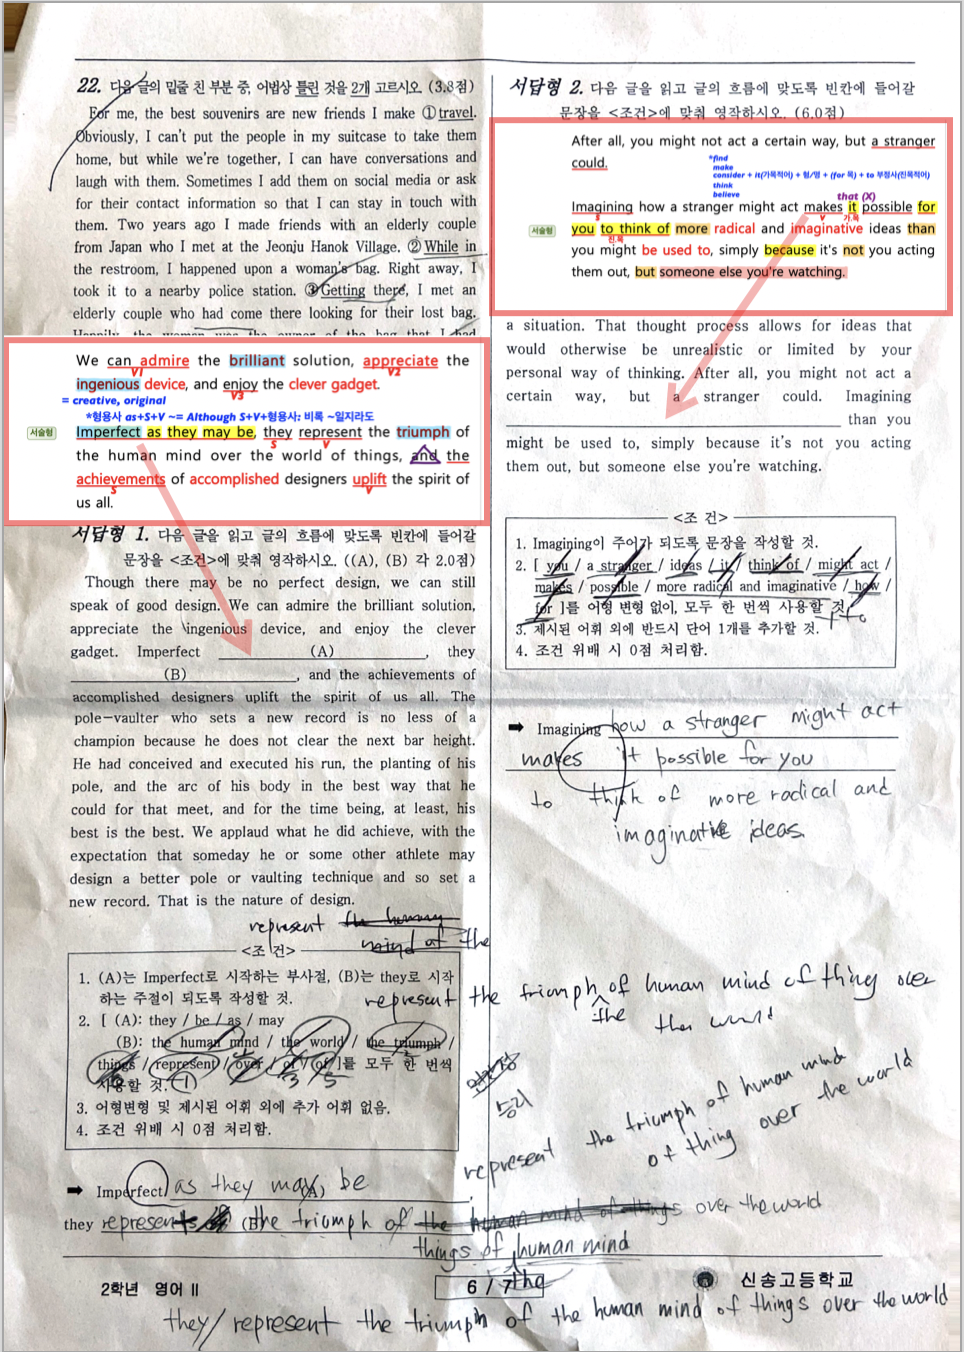 22. 다음 글의 밑줄 친 부분 중, 어법상 틀린 것을 2개 고르시오. (3.8점)
For me, the best souvenirs are new friends I make ① travel.
Obviously, I can't put the people in my suitcase to take them
home, but while we're together, I can have conversations and
laugh with them. Sometimes I add them on social media or ask
for their contact information so that I can stay in touch with
them. Two years ago I made friends with an elderly couple
from Japan who I met at the Jeonju Hanok Village. ② While in
the restroom, I happened upon a woman's bag. Right away, I
took it to a nearby police station. ③ Getting there, I met an
elderly couple who had come there looking for their lost bag.
We can admire the brilliant solution, appreciate the
V1 V2
ingenious device, and enjoy the clever gadget.
V3
= creative, original
*형용사 as+S+V ~= Although S+V+형용사: 비록 ~일지라도
서술형
Imperfect as they may be, they represent the triumph of
S V
the human mind over the world of things, and the
achievements of accomplished designers uplift the spirit of
S V
us all.
서답형 1. 다음 글을 읽고 글의 흐름에 맞도록 빈칸에 들어갈
문장을 <조건>에 맞춰 영작하시오. ((A), (B) 각 2.0점)
Though there may be no perfect design, we can still
speak of good design. We can admire the brilliant solution,
appreciate the ingenious device, and enjoy the clever
gadget. Imperfect (A) , they
(B) , and the achievements of
accomplished designers uplift the spirit of us all. The
pole-vaulter who sets a new record is no less of a
champion because he does not clear the next bar height.
He had conceived and executed his run, the planting of his
pole, and the arc of his body in the best way that he
could for that meet, and for the time being, at least, his
best is the best. We applaud what he did achieve, with the
expectation that someday he or some other athlete may
design a better pole or vaulting technique and so set a
new record. That is the nature of design.
represent the human
mind of the
<조 건>
1. (A)는 Imperfect로 시작하는 부사절, (B)는 they로 시작
하는 주절이 되도록 작성할 것.
2. [ (A): they / be / as / may
(B): the human mind / the world / the triumph /
things / represent / over / of / of ]를 모두 한 번씩
사용할 것.
3. 어형변형 및 제시된 어휘 외에 추가 어휘 없음.
4. 조건 위배 시 0점 처리함.
➡ Imperfect as they may be
(A)
they represents the triumph of the human mind of things over the world
(B)
things of human mind
the
서답형 2. 다음 글을 읽고 글의 흐름에 맞도록 빈칸에 들어갈
문장을 <조건>에 맞춰 영작하시오. (6.0점)
After all, you might not act a certain way, but a stranger
could.
*find
make
consider + it(가목적어) + 형/명 + (for 목) + to 부정사(진목적어)
think
believe
that (X)
Imagining how a stranger might act makes it possible for
S V 가.목
서술형
you to think of more radical and imaginative ideas than
진.목
you might be used to, simply because it's not you acting
them out, but someone else you're watching.
a situation. That thought process allows for ideas that
would otherwise be unrealistic or limited by your
personal way of thinking. After all, you might not act a
certain way, but a stranger could. Imagining
than you
might be used to, simply because it's not you acting
them out, but someone else you're watching.
<조 건>
1. Imagining이 주어가 되도록 문장을 작성할 것.
2. [ you / a stranger / ideas / it / think of / might act /
makes / possible / more radical and imaginative / how /
for ]를 어형 변형 없이, 모두 한 번씩 사용할 것.
+to
3. 제시된 어휘 외에 반드시 단어 1개를 추가할 것.
4. 조건 위배 시 0점 처리함.
➡ Imagining how a stranger might act
makes it possible for you
to think of more radical and
imaginative ideas.
represent the triumph of human mind of thing over
the the world
승리
represent the triumph of human mind
of thing over the world
2학년 영어 II
6 / 7
신송고등학교
they/ represent the triumph of the human mind of things over the world